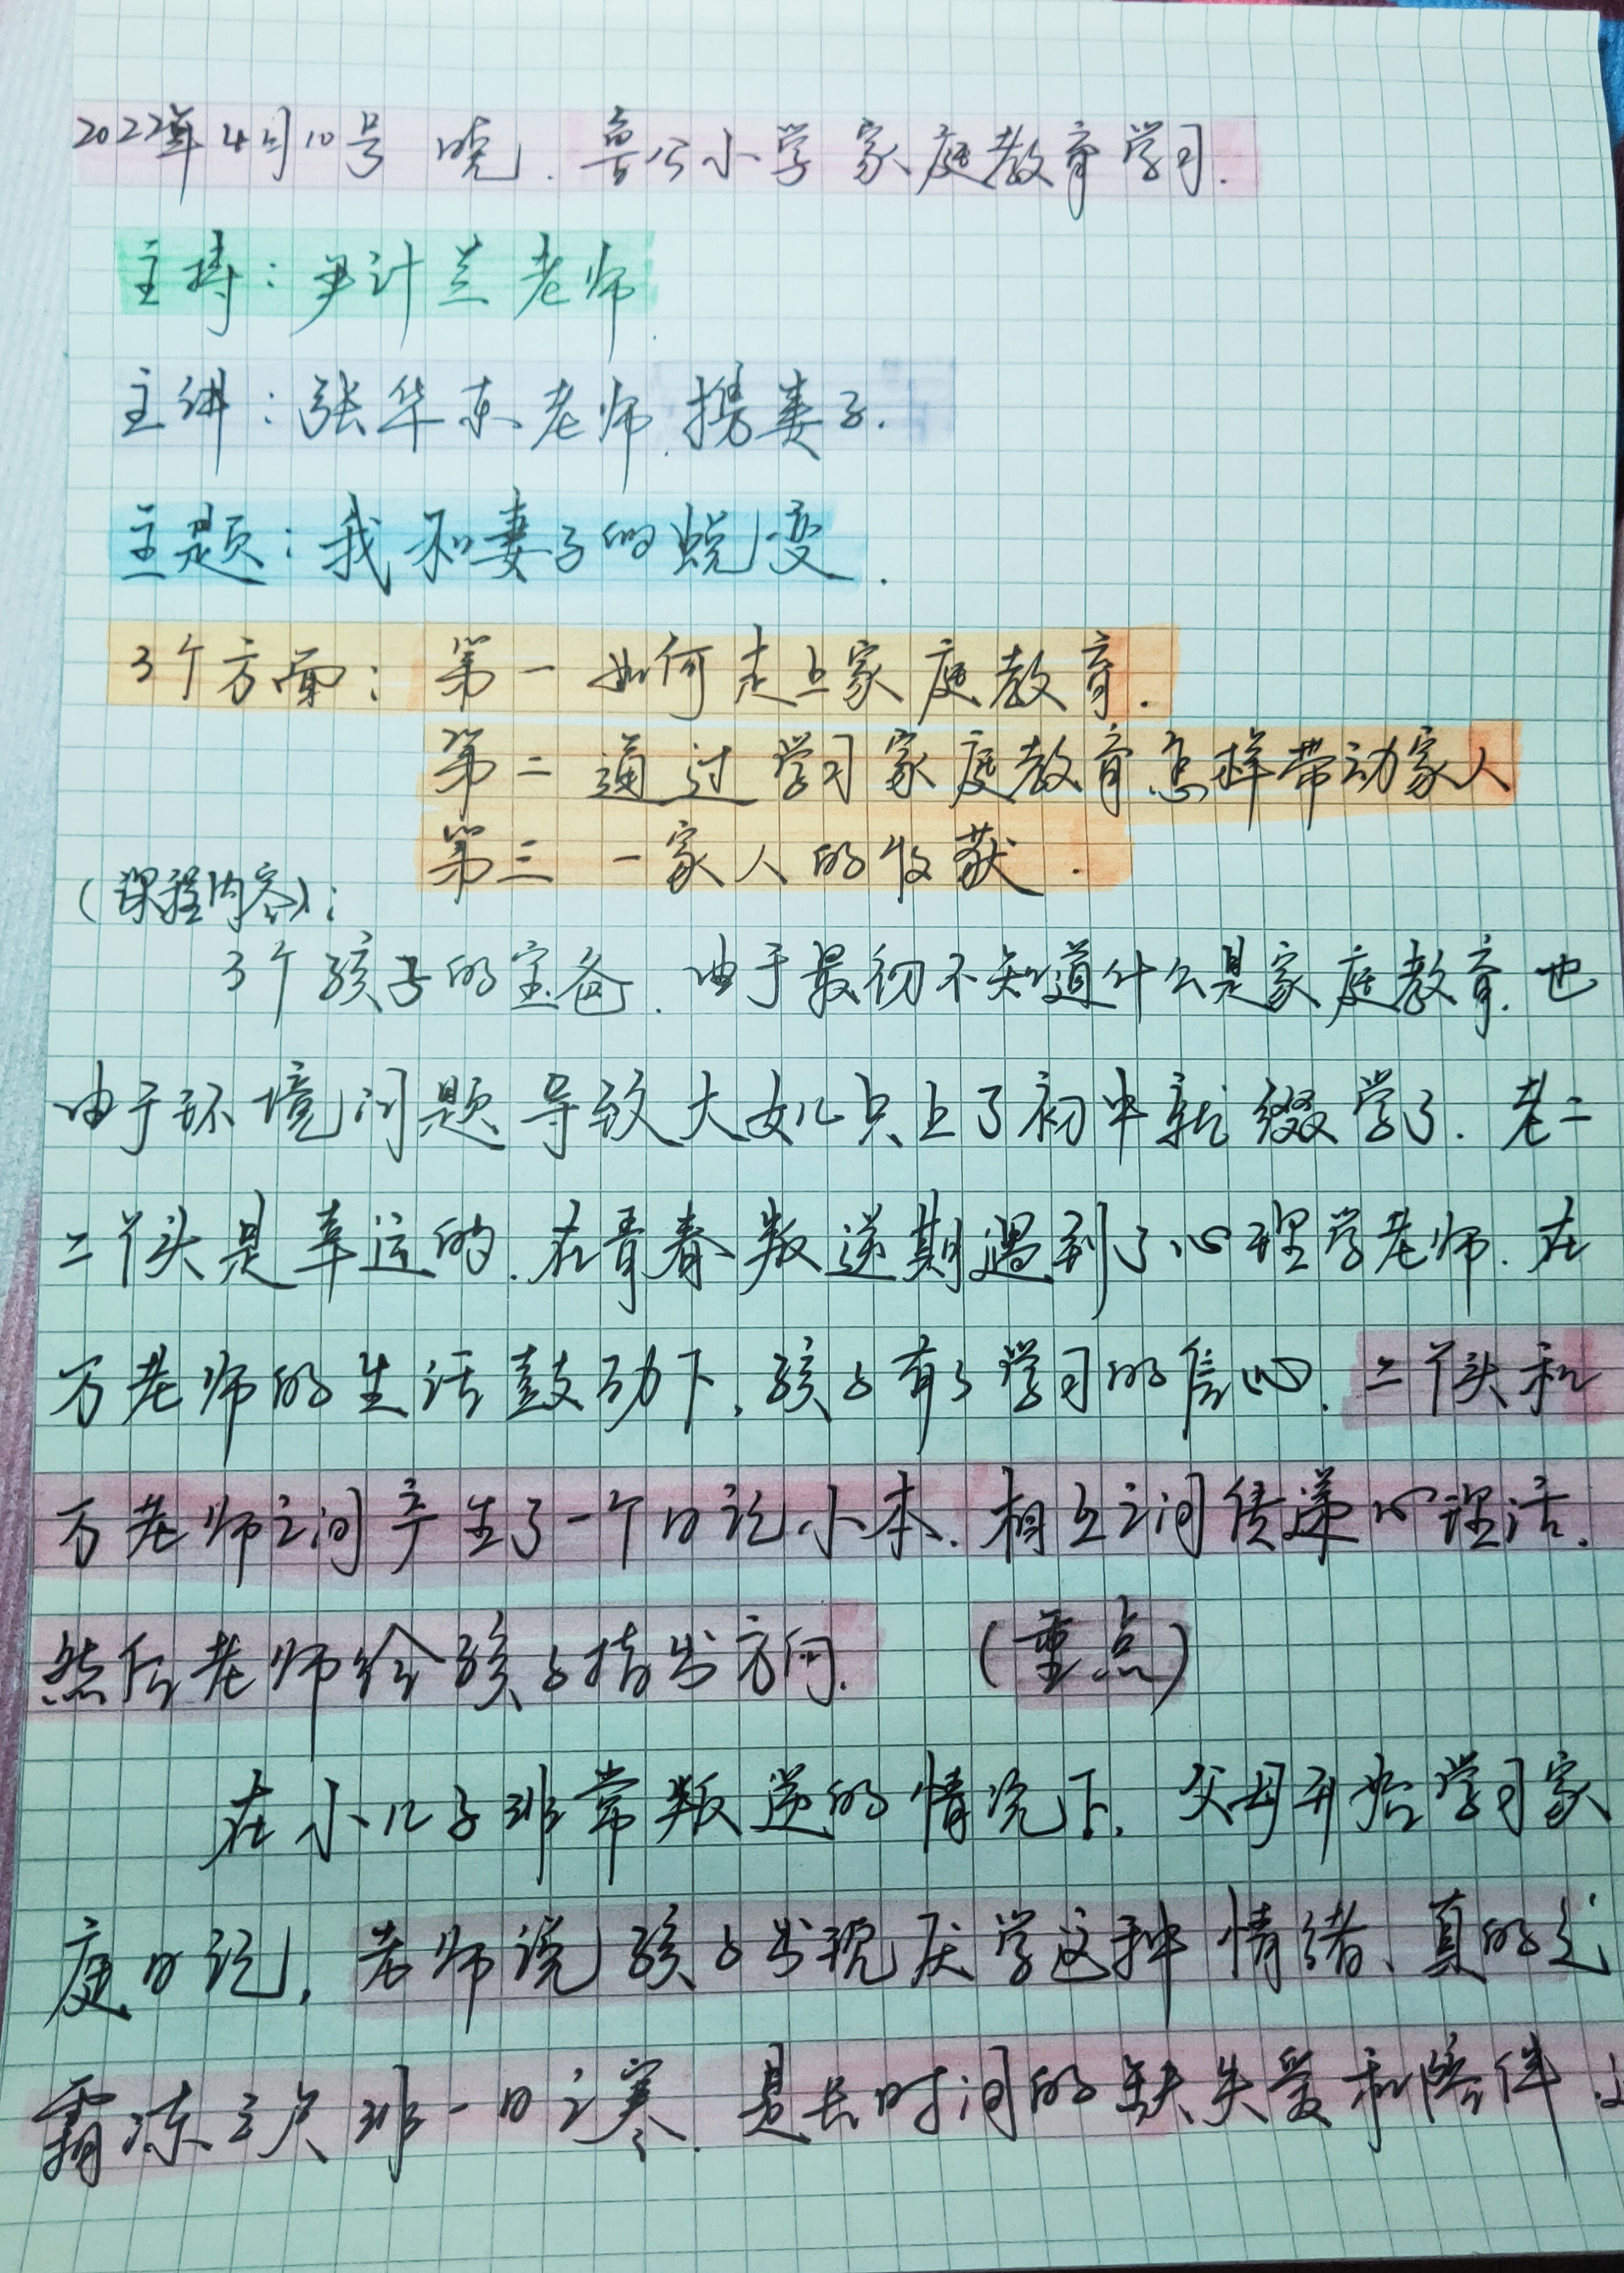 2022年4月10号 晚. 鲁公小学家庭教育学习.
主持：尹计兰老师.
主讲：张华东老师.携妻子.
主题：我和妻子的蜕变.
3个方面：第一如何走上家庭教育.
第二通过学习家庭教育怎样带动家人
第三 一家人的收获.
(课程内容)：
3个孩子的宝爸.由于最初不知道什么是家庭教育.也
由于环境问题导致大女儿只上了初中就缀学了.老二
二丫头是幸运的.在青春叛逆期遇到了心理学老师.在
万老师的生活鼓动下,孩子有了学习的信心.二丫头和
万老师之间产生了一个日记小本.相互之间传递心理话.
然后老师给孩子指出方向. (重点)
在小儿子非常叛逆的情况下.父母开始学习家
庭日记,老师说孩子出现厌学这种情绪、真的是
霜冻三尺非一日之寒.是长时间的缺失爱和陪伴.